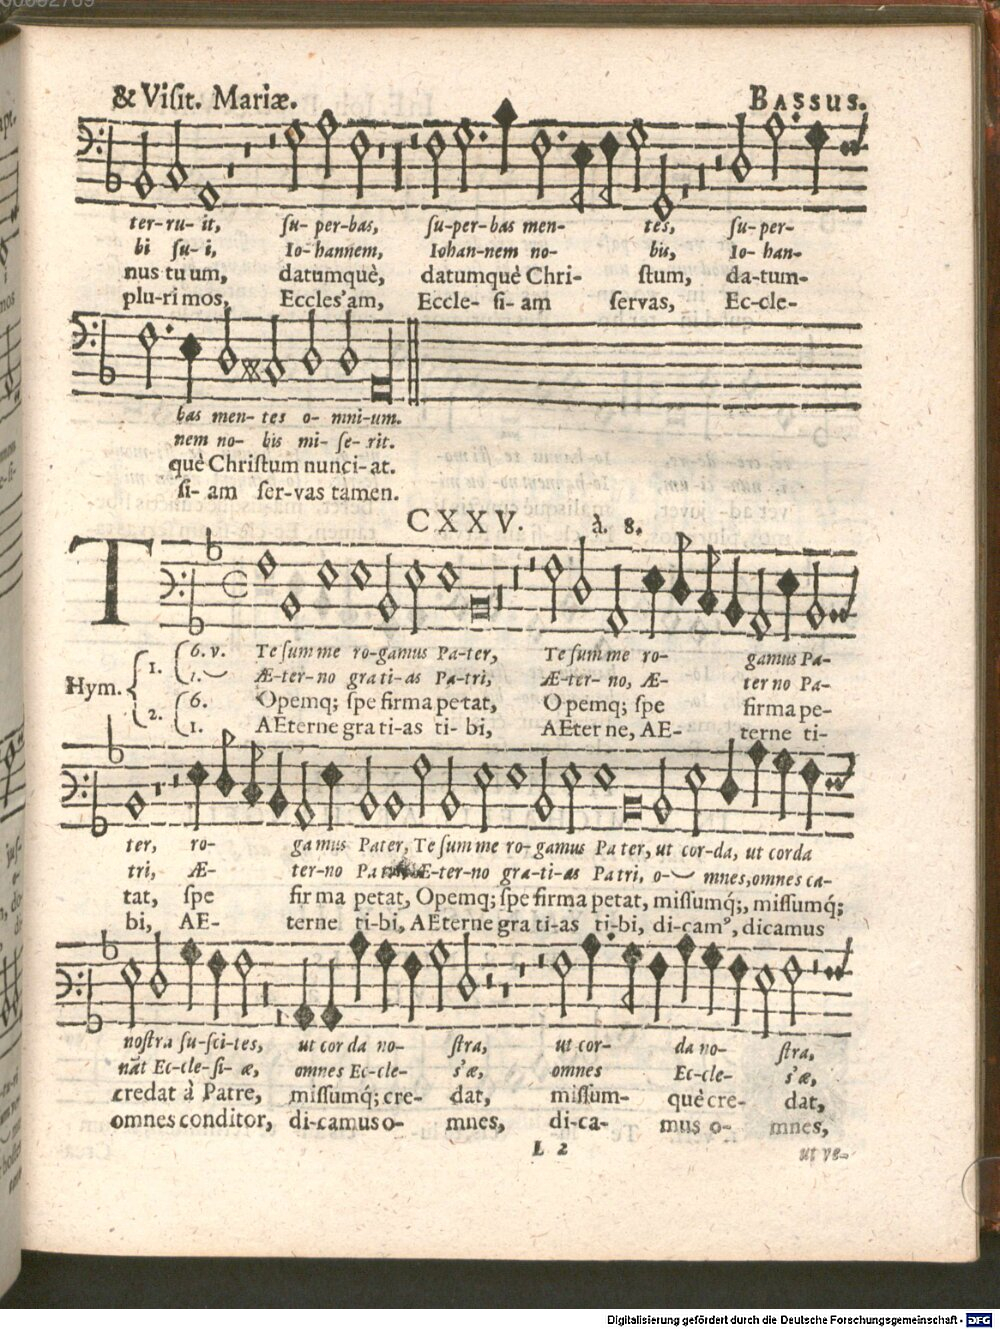 & Viſit. Mariæ. BASSUS.
ter-ru- it, ſu- per-bas, ſu-per-bas men- tes, ſu-per-
bi ſu- i, Io-hannem, Iohan-nem no- bis, Io- han-
nus tuum, datumquè, datumquè Chri- ſtum, da-tum-
plu-rimos, Eccleſ'am, Eccle- ſi- am ſervas, Ec-cle-
bas men- tes o- mni-um.
nem no- bis mi- ſe- rit.
què Chriſtum nunci-at.
ſi- am ſer-vas tamen.
CXXV. à. 8.
T
Hym. 1. 6. v. Te ſum me ro-gamus Pa-ter, Te ſum me ro- gamus Pa-
1. Æ-ter-no grati-as Pa-tri, Æ-ter- no, Æ- terno Pa-
2. 6. Opemq; ſpe firma petat, Opemq; ſpe firma pe-
1. AEterne grati-as ti- bi, AEterne, AE- terne ti-
ter, ro- gamus Pater, Te ſum me ro-gamus Pater, ut cor-da, ut corda
tri, Æ- ter-no Æ-ter-no gra-ti-as Patri, o- mnes, omnes ca-
tat, ſpe firma petat, Opemq; ſpe firma petat, miſſumq́;, miſſumq́;
bi, AE- terne ti-bi, AEterne grati-as ti-bi, di-camꝰ, dicamus
noſtra ſu-ſci-tes, ut cor da no- ſtra, ut cor- da no- ſtra,
nāt Ec-cle-ſi- æ, omnes Ec-cle- s'æ, omnes Ec-cle- s'æ,
credat à Patre, miſſumq́; cre- dat, miſſum- què cre- dat,
omnes conditor, di-camus o- mnes, di-ca- mus o- mnes,
L 2 ut ve-
Digitalisierung gefördert durch die Deutsche Forschungsgemeinschaft - DFG